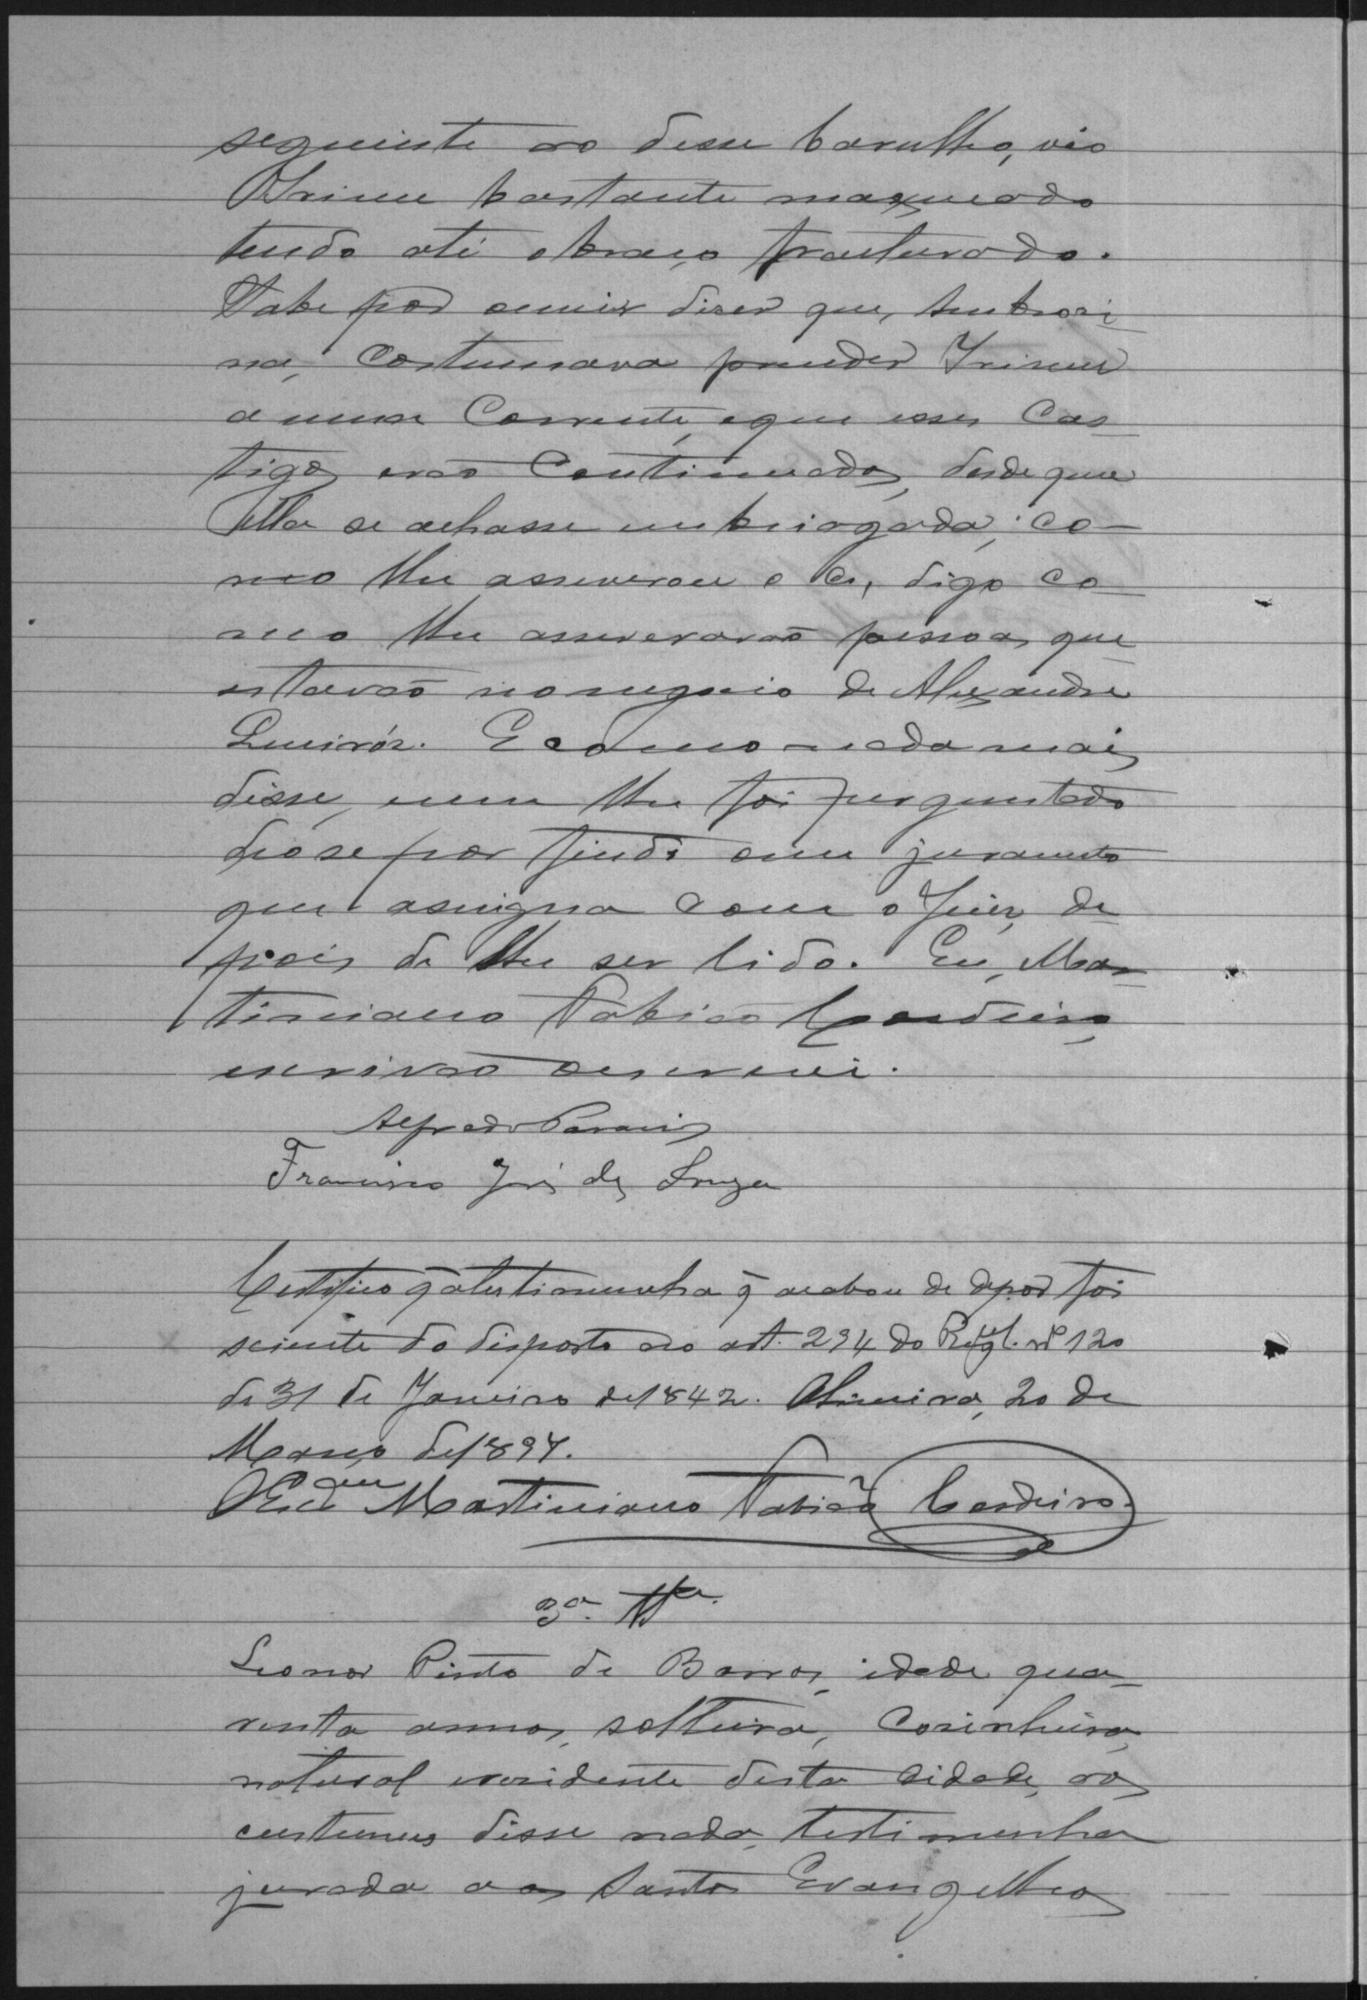 seguinte ao desse barulho, vio
Irineu bastante maxucado
tendo até o braço fracturado.
Sabe por ouvir diser que, Ambrosi-
na, costumava prender Irineu
a uma corrente, e que esses cas-
tigos erão continuados, desde que
Ella se achasse embriagada; co-
mo lhe asseverou o Ca, digo co-
mo lhe asseverarão pessoas que
estavão no negocio de Alexandre
Queiróz. E como nada mais
disse, nem lhe foi perguntado
deo se por findo seu juramento
que assigna com o Juiz, de-
pois de lhe ser lido. Eu, Mar-
tiniano Fabião Cordeiro,
escrivão o escrevi.
Alfredo
Francisco José de Souza
Certifico q̃ a testimunha q̃ acabou de depor foi
sciente do disposto no art. 294 do Regl. nº 120
de 31 de Janeiro de 1842. Limeira, 20 de
Março de 1894.
Martiniano Fabião Cordeiro.
3ª Tta.
Leonor Pinto de Barros, idade qua-
renta annos, solteira, cosinheira,
natural e residente desta cidade, aos
custumes disse nada, testimunha
jurada aos Santos Evangelhos